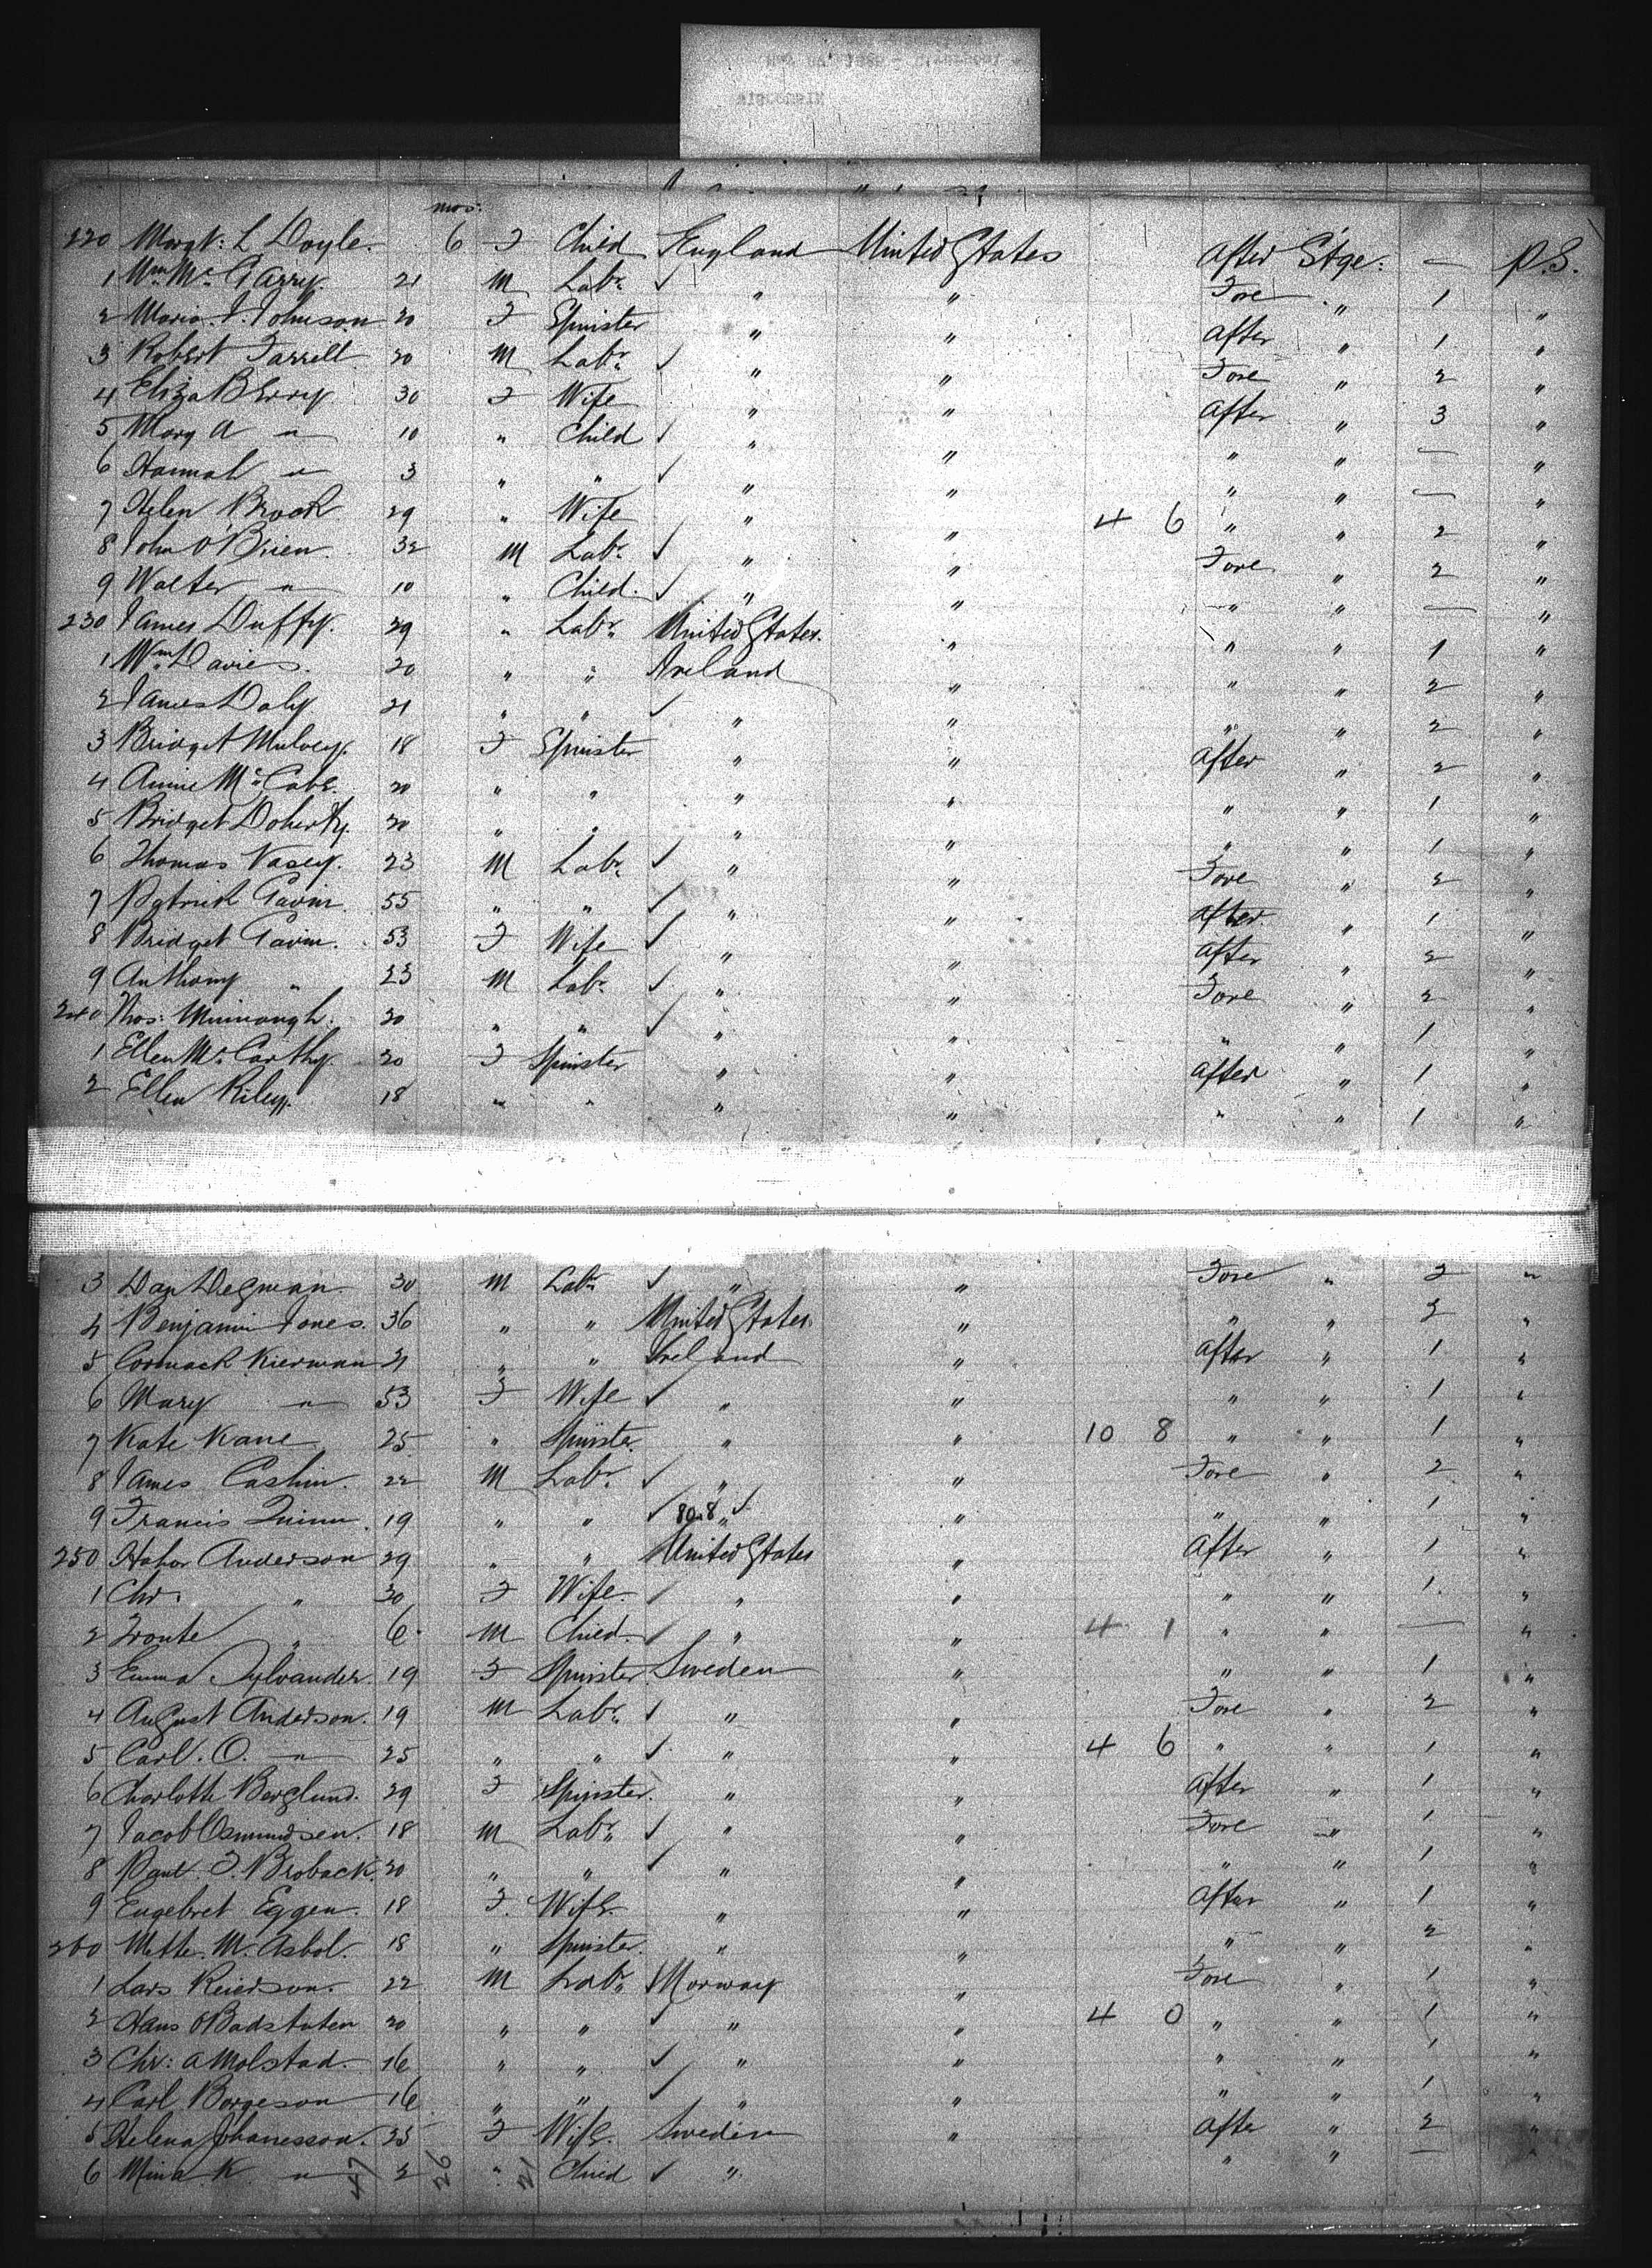 mos:
220 Margt: L Doyle. 6 F Child England United States After Stge: — P.S.
1 Wm Mc Garry. 21 M Labr ✓ " " Fore " 1 "
2 Maria. J. Johnson 20 F Spinster " " After " 1 "
3 Robert Farrell 20 M Labr ✓ " " Fore " 2 "
4 Eliza Berry 30 F Wife " " After " 3 "
5 Mary A " 10 " Child ✓ " " " " — "
6 Hannah " 3 " " ✓ " " " " — "
7 Helen Brook 29 " Wife " " 4 6 " " 2 "
8 John O'Brien. 32 M Labr ✓ " " Fore " 2 "
9 Walter " 10 " Child. ✓ " " " " — "
230 James Duffy. 29 " Labr United States. " " " 1 "
1 Wm Davies. 20 " " Ireland " " " 2 "
2 James Daly 21 " " ✓ " " " " 2 "
3 Bridget Mulvey. 18 F Spinster " " After " 2 "
4 Annie Mc Cabe. 20 " " " " " " 1 "
5 Bridget Doherty. 20 " " " " " " 1 "
6 Thomas Vasey. 23 M Labr ✓ " " Fore " 2 "
7 Patrick Gavin 55 " " ✓ " " After. " 1 "
8 Bridget Gavin. 53 F Wife ✓ " " After " 2 "
9 Anthony " 23 M Labr ✓ " " Fore " 2 "
240 Thos: Minnough. 20 " " ✓ " " " " 1 "
1 Ellen Mc Carthy. 20 F Spinster " " After " 1 "
2 Ellen Riley. 18 " " " " " " 1 "
3 Dan Degnan 30 M Labr ✓ " " Fore " 2 "
4 Benjamin Jones. 36 " " United States. " " " 2 "
5 Cormack Kiernan 21 " " Ireland " After " 1 "
6 Mary " 53 F Wife ✓ " " " " 1 "
7 Kate Kane 25 " Spinster. " " 10 8 " " 1 "
8 James Cashin. 22 M Labr ✓ " " Fore " 2 "
9 Francis Quinn. 19 " " ✓ " ✓ " " " 1 "
250 Anderson 29 " " United States " After " 1 "
1 Chr. " 30 F Wife. ✓ " " " " 1. "
2 " 6 M Child ✓ " " 4 1 " " — "
3 Emma Sylvander. 19 F Spinster Sweden " " " 1 "
4 August Anderson. 19 M Labr ✓ " " Fore " 2 "
5 Carl. O. " 25 " " ✓ " " 4 6 " " 1 "
6 Charlotte Berglund. 29 F Spinster. " " After " 1 "
7 Jacob Osmundsen. 18 M Labr ✓ " " Fore " 1 "
8 Paul. F. Broback. 20 " " ✓ " " " " 1 "
9 Engebret Eggen. 18 F. Wife. " " After " 1 "
260 Mette. M. Asbol. 18 " Spinster. " " " " 2 "
1 Lars Reierson. 22 M Labr ✓ Norway " Fore " 1 "
2 Hans O Badstuten 20 " " ✓ " " 4 0 " " 1 "
3 Chr: A Molstad. 16 " " ✓ " " " " 1 "
4 Carl Borgeson 16 " " ✓ " " " " 1 "
5 Helena Johanesson. 25 F Wife. Sweden " After " 2 "
6 Mina K " 2 " Child ✓ " " " — "
47 26 21